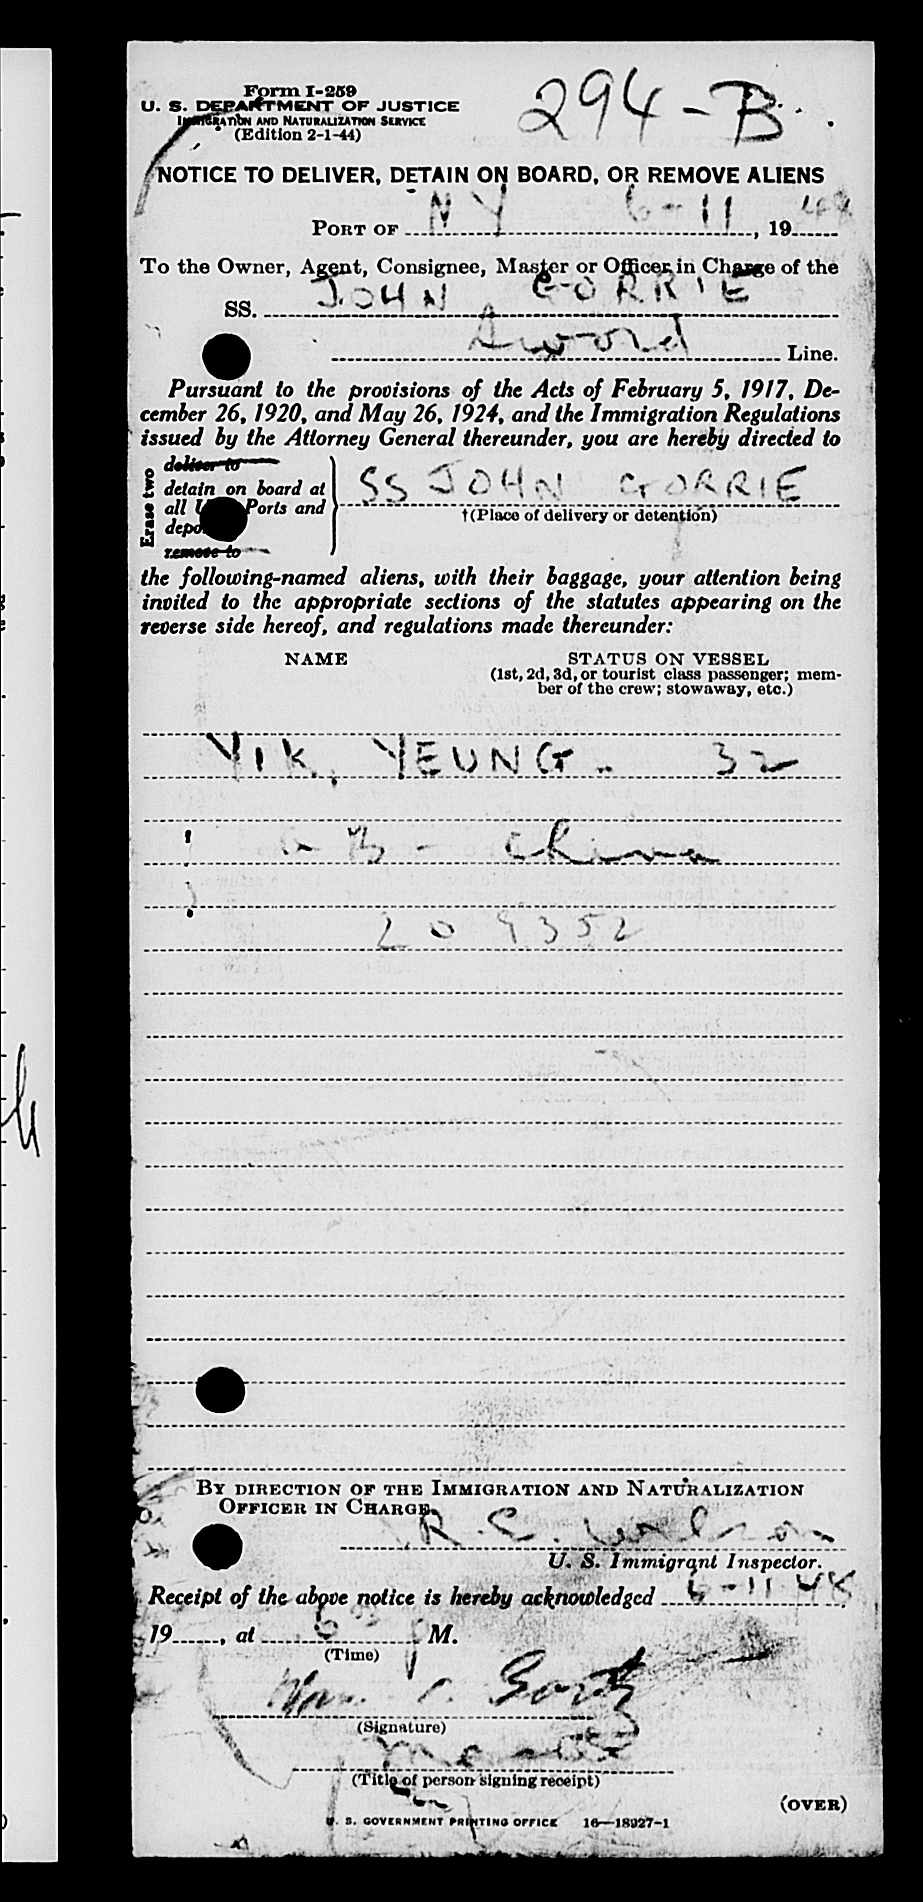 Form I-259
294-B
U. S. DEPARTMENT OF JUSTICE
IMMIGRATION AND NATURALIZATION SERVICE
(Edition 2-1-44)
NOTICE TO DELIVER, DETAIN ON BOARD, OR REMOVE ALIENS
PORT OF NY 6-11, 1948
To the Owner, Agent, Consignee, Master or Officer in Charge of the
SS. JOHN GORRIE
Line.
Pursuant to the provisions of the Acts of February 5, 1917, De-
cember 26, 1920, and May 26, 1924, and the Immigration Regulations
issued by the Attorney General thereunder, you are hereby directed to
Erase two
deliver to
detain on board at
all Ports and
remove to
SS JOHN GORRIE
†(Place of delivery or detention)
the following-named aliens, with their baggage, your attention being
invited to the appropriate sections of the statutes appearing on the
reverse side hereof, and regulations made thereunder:
NAME STATUS ON VESSEL
(1st, 2d, 3d, or tourist class passenger; mem-
ber of the crew; stowaway, etc.)
YIK, YEUNG. 32
B - China
209352
BY DIRECTION OF THE IMMIGRATION AND NATURALIZATION
OFFICER IN CHARGE.
R. C. Wilson
U. S. Immigrant Inspector.
Receipt of the above notice is hereby acknowledged 6-11-48
19, at M.
(Time)
Wm.
(Signature)
(Title of person signing receipt)
(OVER)
U. S. GOVERNMENT PRINTING OFFICE 16—18927-1